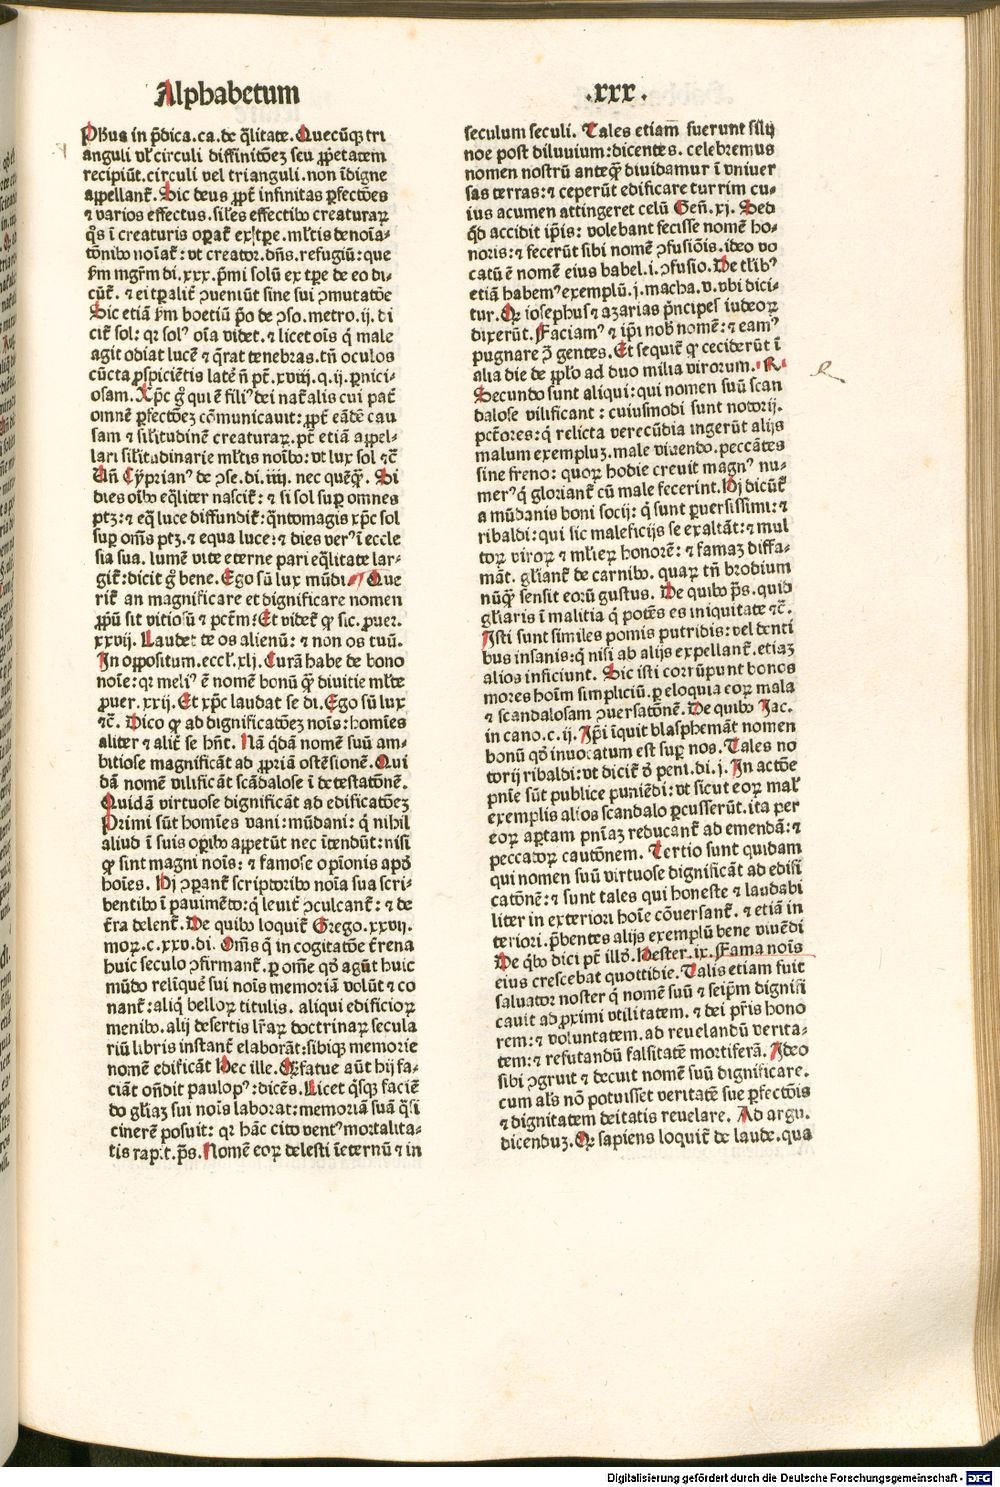 Alphabetum .xxx.
Pħus in p̄dica.ca.de q̄litate. Quecūqꝫ tri
anguli vl̓ circuli diffinitōeꝫ seu ꝓp̄etatem
recipiūt. circuli vel trianguli. non īdigne
appellant᷑. Sic deus ꝓpt̓ infinitas ꝑfectōes
⁊ varios effectus. sil̓es effectibꝰ creaturaꝝ
q̄s ī creaturis oꝑat᷑ ex t̄pe. ml̓tis denoīa-
tōnibꝰ noīat᷑: vt creator. dn̄s. refugiū: que
ẜm mgr̄m di.xxx. p̄mi solū ex t̄pe de eo di-
cūt᷑. ⁊ ei tp̄alit̓ ꝯueniūt sine sui ꝯmutatōe
Sic etiā ẜm boetiū p̄o de ꝯso. metro. ij. di
cit᷑ sol: qꝛ solꝰ oīa videt. ⁊ licet oīs q̄ male
agit odiat lucē ⁊ q̄rat tenebras. tn̄ oculos
cūcta ꝑspiciētis latē n̄ pt̄. xviij. q. ij. ꝑnici-
osam. Xp̄c g̊ qui ē filiꝰ dei nat᷑alis cui pat̓
omnē ꝑfectōeꝫ cōmunicauit: ꝓpt̓ eādē cau
sam ⁊ sil̓itudinē creaturaꝝ. pt̄ etiā appel-
lari sil̓itudinarie ml̓tis noībꝰ: vt lux sol ⁊c̄
Vn̄ Cyprianꝰ de ꝯse. di. iiij. nec quēqȝ. Si
dies oībꝰ eq̄liter nascit᷑: ⁊ si sol suꝑ omnes
ptꝫ: ⁊ eq̄ luce diffundit᷑: q̄ntomagis xp̄c sol
suꝑ om̄s ptꝫ. ⁊ equa luce: ⁊ dies verꝰ ī eccle
sia sua. lumē vite eterne pari eq̄litate lar-
git᷑: dicit g̊ bene. Ego sū lux mūdi. Que
rit᷑ an magnificare et dignificare nomen
ꝓpū sit vitiosū ⁊ pctm̄? Et videt᷑ ꝙ sic. ꝓuer.
xxvij. Laudet te os alienū: ⁊ non os tuū.
In oppositum. eccl̓. xlj. Curā habe de bono
noīe: qꝛ meliꝰ ē nomē bonū qȝ diuitie ml̓te
ꝓuer. xxij. Et xp̄c laudat se di. Ego sū lux
⁊c̄. Dico ꝙ ad dignificatōeꝫ noīs: homīes
aliter ⁊ alit̓ se hn̄t. Nā q̄dā nomē suū am-
bitiose magnificāt ad ꝓpriā ostēsionē. Qui
dā nomē vilificāt scādalose ī detestatōnē.
Quidā virtuose dignificāt ad edificatōeꝫ
Primi sūt homīes vani: mūdani: q̄ nihil
aliud ī suis oꝑibꝰ appetūt nec ītendūt: nisi
ꝙ sint magni noīs: ⁊ famose opīonis apd̓
hoīes. Hj ꝯꝑant᷑ scriptoribꝰ noīa sua scri-
bentibꝰ ī pauimēto: q̄ leuit̓ ꝯculcant᷑: ⁊ de
t̓ra delent᷑. De quibꝰ loquit᷑ Grego. xxvij.
moꝝ. c. xxv. di. Om̄s q̄ in cogitatōe t̓rena
huic seculo ꝯfirmant᷑. ꝑ om̄e qd̓ agūt huic
mūdo relīquē sui noīs memoriā volūt ⁊ co
nant᷑: aliq̄ belloꝝ titulis. aliqui edificioꝝ
menibꝰ. alij desertis lr̄aꝝ doctrinaꝝ secula
riū libris instant᷑ elaborāt: sibiqꝫ memorie
nomē edificāt Hec ille. Qꝛ fatue aūt hij fa-
ciāt on̄dit paulopꝰ: dicēs. Licet q̄sqꝫ faciē
do gl̓iaꝫ sui noīs laborat: memoriā suā q̄si
cinerē posuit: qꝛ hāc cito ventꝰ mortalita-
tis rapit. ps̄. Nomē eoꝝ delesti īeternū ⁊ in
seculum seculi. Tales etiam̄ fuerunt filij
noe post diluuium: dicentes. celebremus
nomen nostrū anteqȝ diuidamur ī vniuer
sas terras: ⁊ ceperūt edificare turrim cu-
ius acumen attingeret celū Gen̄. xj. Sed
qd̓ accidit ip̄is: volebant fecisse nomē ho-
noris: ⁊ fecerūt sibi nomē ꝯfusiōis. ideo vo
catū ē nomē eius babel. i. ꝯfusio. De tl̓ibꝰ
etiā habemꝰ exemplū. j. macha. v. vbi dici-
tur. Qꝛ iosephus ⁊ azarias p̄ncipes iudeoꝝ
dixerūt. Faciamꝰ ⁊ ip̄i nob̓ nomē: ⁊ eamꝰ
pugnare ꝯ̄ gentes. Et sequit᷑ ꝙ ceciderūt ī
alia die de ꝓpl̓o ad duo milia virorum. R
Secundo sunt aliqui: qui nomen suū scan
dalose vilificant: cuiusmodi sunt notorij.
pctōres: q̄ relicta verecūdia ingerūt alijs
malum exempluꝫ. male viuendo. peccātes
sine freno: quoꝝ hodie creuit magnꝰ nu-
merꝰ q̄ gloriant᷑ cū male fecerint. Hj dicūt᷑
a mūdanis boni socij: q̄ sunt ꝑuersissimi: ⁊
ribaldi: qui sic maleficijs se exaltāt: ⁊ mul
toꝝ viroꝝ ⁊ ml̓ieꝝ honorē: ⁊ famaꝫ diffa-
māt. gl̓iant᷑ de carnibꝰ. quaꝝ tn̄ brodium
nūqȝ sensit eorū gustus. De quibꝰ ps̄. quid
gl̓iaris ī malitia q̄ potēs es iniquitate ⁊c̄.
Isti sunt similes pomis putridis: vel denti
bus insanis: q̄ nisi ab alijs expellant᷑. etiaꝫ
alios inficiunt. Sic isti corrūpunt bonos
mores hoīm simpliciū. ꝑ eloquia eoꝝ mala
⁊ scandalosam ꝯuersatōnē. De quibꝰ Jac.
in cano. c. ij. Ip̄i īquit blasphemāt nomen
bonū qd̓ inuocatum est suꝑ nos. Tales no
torij ribaldi: vt dicit᷑ d̓ peni. di. j. In actōe
pn̄ie sūt publice puniēdi: vt sicut eoꝝ mal̓
exemplis alios scandalo ꝑcusserūt. ita per
eoꝝ aꝑtam pn̄iaꝫ reducant᷑ ad emendā: ⁊
peccatoꝝ cautōnem. Tertio sunt quidam
qui nomen suū virtuose dignificāt ad edifi
catōnē: ⁊ sunt tales qui honeste ⁊ laudabi
liter in exteriori hoīe cōuersant᷑. ⁊ etiā in
teriori. p̄bentes alijs exemplū bene viuēdi
De q̄bꝰ dici pt̄ illd̓. Hester. ix. Fama noīs
eius crescebat quottidie. Talis etiam fuit
saluator noster q̄ nomē suū ⁊ seip̄m dignifi
cauit ad ꝓximi vtilitatem. ⁊ dei pr̄is hono
rem: ⁊ voluntatem. ad reuelandū verita-
tem: ⁊ refutandū falsitatē mortiferā. Ideo
sibi ꝯgruit ⁊ decuit nomē suū dignificare.
cum al̓s nō potuisset veritatē sue ꝑfectōis
⁊ dignitatem deitatis reuelare. Ad argu.
dicenduꝫ. Qꝛ sapiens loquit᷑ de laude. qua
Digitalisierung gefördert durch die Deutsche Forschungsgemeinschaft - DFG